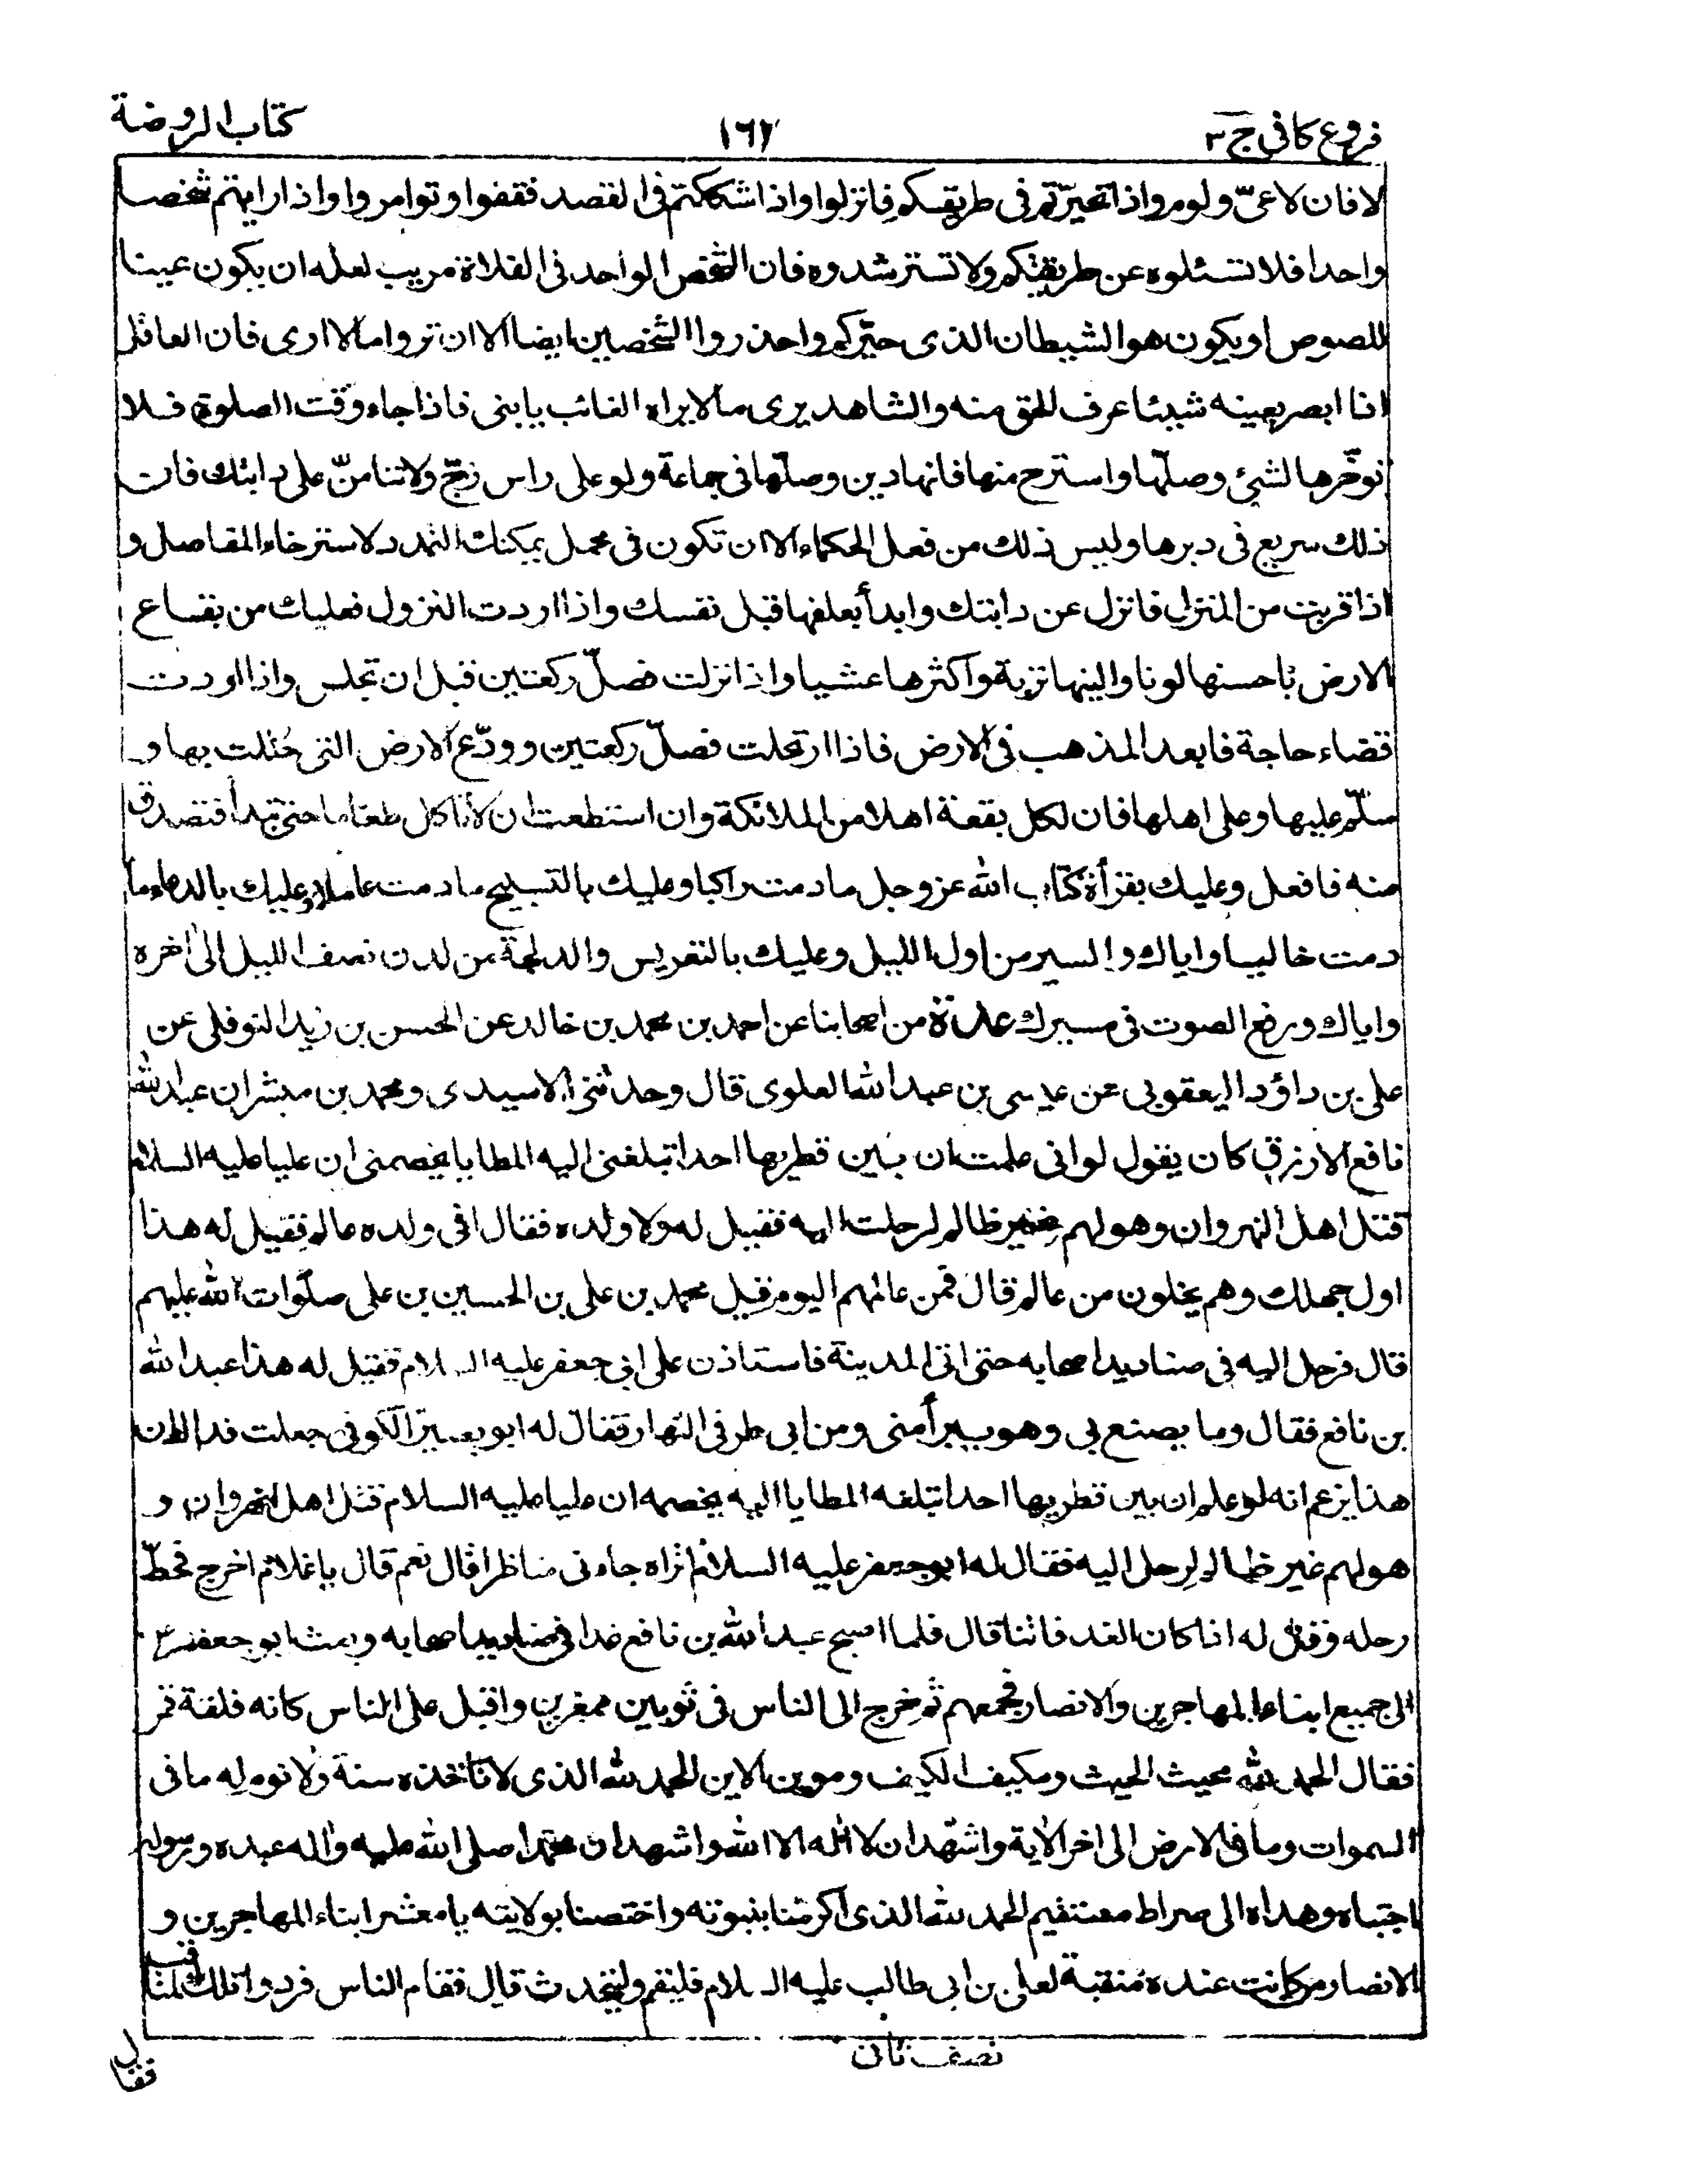 فروع كافى ج ٣
١٦٧
كتاب الروضة
لا فان لا عىّ ولوم واذا تحيّرتم فى طريقكم فانزلوا واذا شككتم فى القصد فقفوا وتوامروا واذا رايتم شخصا
واحدا فلا تسئلوه عن طريقكم ولا تسترشدوه فان الشخص الواحد فى الفلاة مريب لعله ان يكون عينا
للصوص او يكون هو الشيطان الذى حيّركم واحذروا الشخصين ايضا الا ان تروا ما لا ارى فان العاقل
اذا ابصر بعينه شيئا عرف الحق منه والشاهد يرى ما لا يراه الغائب يا بنى فاذا جاء وقت الصلوة فلا
تؤخّرها لشئ وصلّها واسترح منها فانها دين وصلّها فى جماعة ولو على راس زجّ ولا تنامنّ على دابتك فان
ذلك سريع فى دبرها وليس ذلك من فعل الحكماء الا ان تكون فى محمل يمكنك التمدد لاسترخاء المفاصل و
اذا قربت من المنزل فانزل عن دابتك وابدأ بعلفها قبل نفسك واذا اردت النزول فعليك من بقاع
الارض باحسنها لونا والينها تربة واكثرها عشبا واذا نزلت فصلّ ركعتين قبل ان تجلس واذا اردت
قضاء حاجة فابعد المذهب فى الارض فاذا ارتحلت فصلّ ركعتين وودّع الارض التى حللت بها و
سلّم عليها وعلى اهلها فان لكل بقعة اهلا من الملائكة وان استطعت ان لا تاكل طعاما حتى تبدأ فتصدق
منه فافعل وعليك بقرأة كتاب الله عز وجل ما دمت راكبا وعليك بالتسبيح ما دمت عاملا وعليك بالدعاء ما
دمت خاليا واياك والسير من اول الليل وعليك بالتعريس والدلجة من لدن نصف الليل الى اخره
واياك ورفع الصوت فى مسيرك عدة من اصحابنا عن احمد بن محمد بن خالد عن الحسن بن زيد النوفلى عن
على بن داؤد اليعقوبى عن عيسى بن عبد الله العلوى قال وحدثنى الاسيدى ومحمد بن مبشر ان عبد الله
نافع الازرق كان يقول لو انى علمت ان بين قطريها احدا تبلغنى اليه المطايا يخصمنى ان عليا عليه السلام
قتل اهل النهروان وهو لهم غير ظالم لرحلت اليه فقيل له ولا ولده فقال افى ولده عالم فقيل له هذا
اول جهلك وهم يخلون من عالم قال فمن عالمهم اليوم قيل محمد بن على بن الحسين بن على صلوات الله عليهم
قال فرحل اليه فى صناديد اصحابه حتى اتى المدينة فاستاذن على ابى جعفر عليه السلام فقيل له هذا عبد الله
بن نافع فقال وما يصنع بى وهو يبرأ منى ومن ابى طرفى النهار فقال له ابو بصير الكوفى جعلت فداك ان
هذا يزعم انه لو علم ان بين قطريها احدا تبلغه المطايا اليه يخصمه ان عليا عليه السلام قتل اهل النهروان و
هو لهم غير ظالم لرحل اليه فقال له ابو جعفر عليه السلام اتراه جاءنى مناظرا قال نعم قال يا غلام اخرج فحطّ
رحله وقل له اذا كان الغد فاتنا قال فلما اصبح عبد الله بن نافع غدا فى صناديد اصحابه وبعث ابو جعفر ع
الى جميع ابناء المهاجرين والانصار فجمعهم ثم خرج الى الناس فى ثوبين ممغرين واقبل على الناس كانه فلقة قمر
فقال الحمد لله محيث الحيث ومكيف الكيف وموين الاين الحمد لله الذى لا تاخذه سنة ولا نوم له ما فى
السموات وما فى الارض الى اخر الاية واشهد ان لا اله الا الله واشهد ان محمدا صلى الله عليه واله عبده ورسوله
اجتباه وهداه الى صراط مستقيم الحمد لله الذى اكرمنا بنبوته واختصنا بولايته يا معشر ابناء المهاجرين و
الانصار من كانت عنده منقبة لعلى بن ابى طالب عليه السلام فليقم وليتحدث قال فقام الناس فردوا تلك المناقب
نصف ثانى
فقال